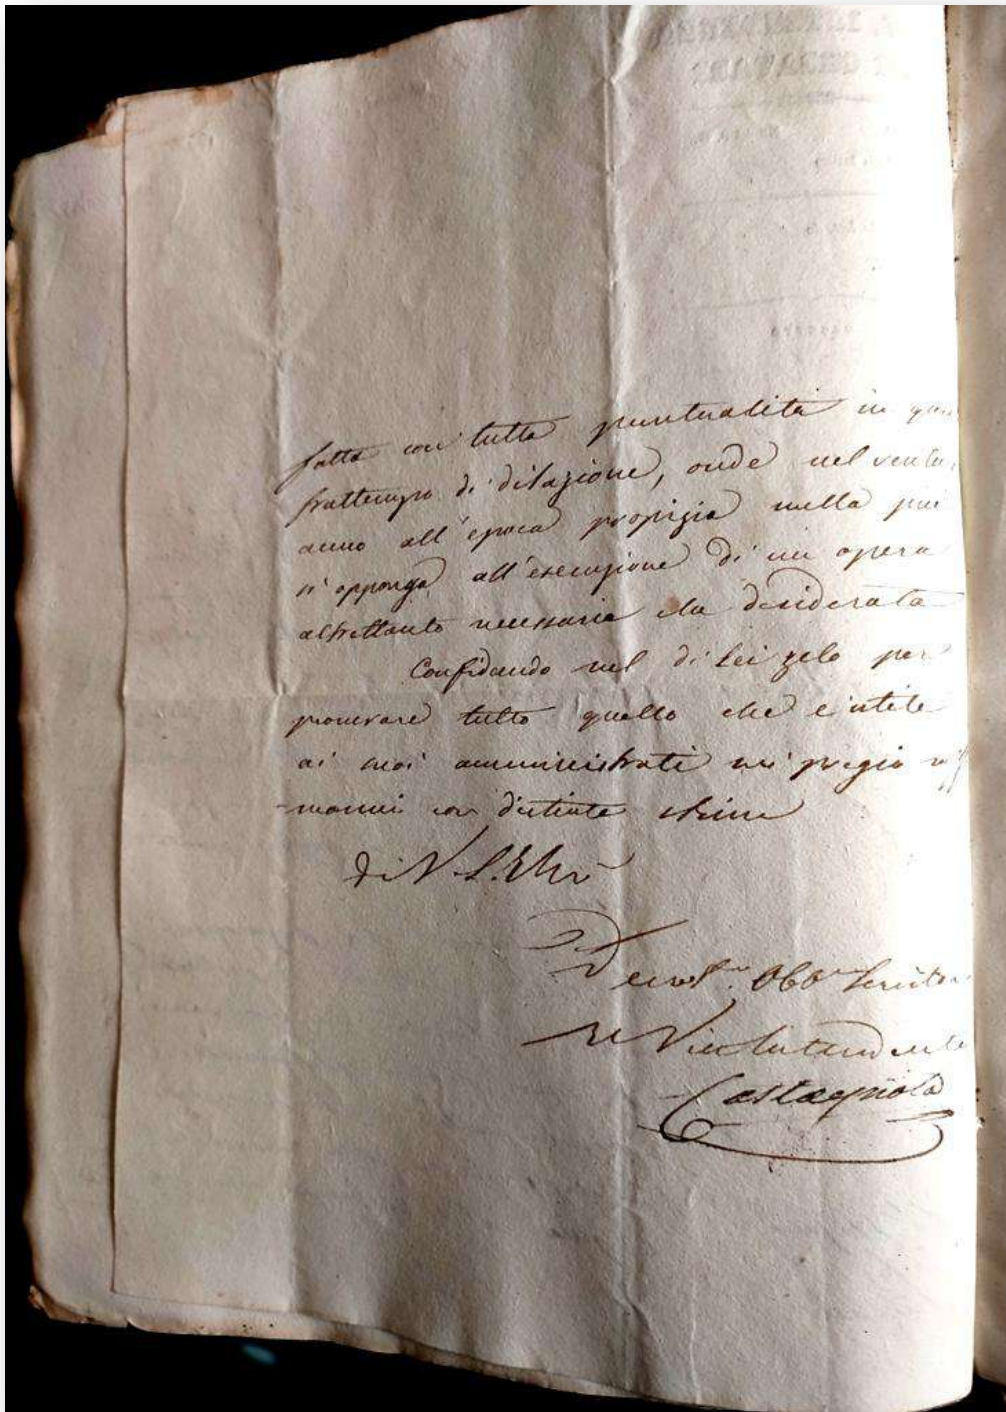 fatto con tutta puntualità in
frattempo di dilazione, onde nel
anno all'epoca propizia nulla più
si opponga all'esecuzione di un opera
altrettanto necessaria che desiderata
Confidando nel di Lei zelo per
promovare tutto quello che è utile
ai suoi amministrati mi pregio
con distinta stima
di V. S. Ill
Obb Servitore
Il Vice Intendente
Castagnola